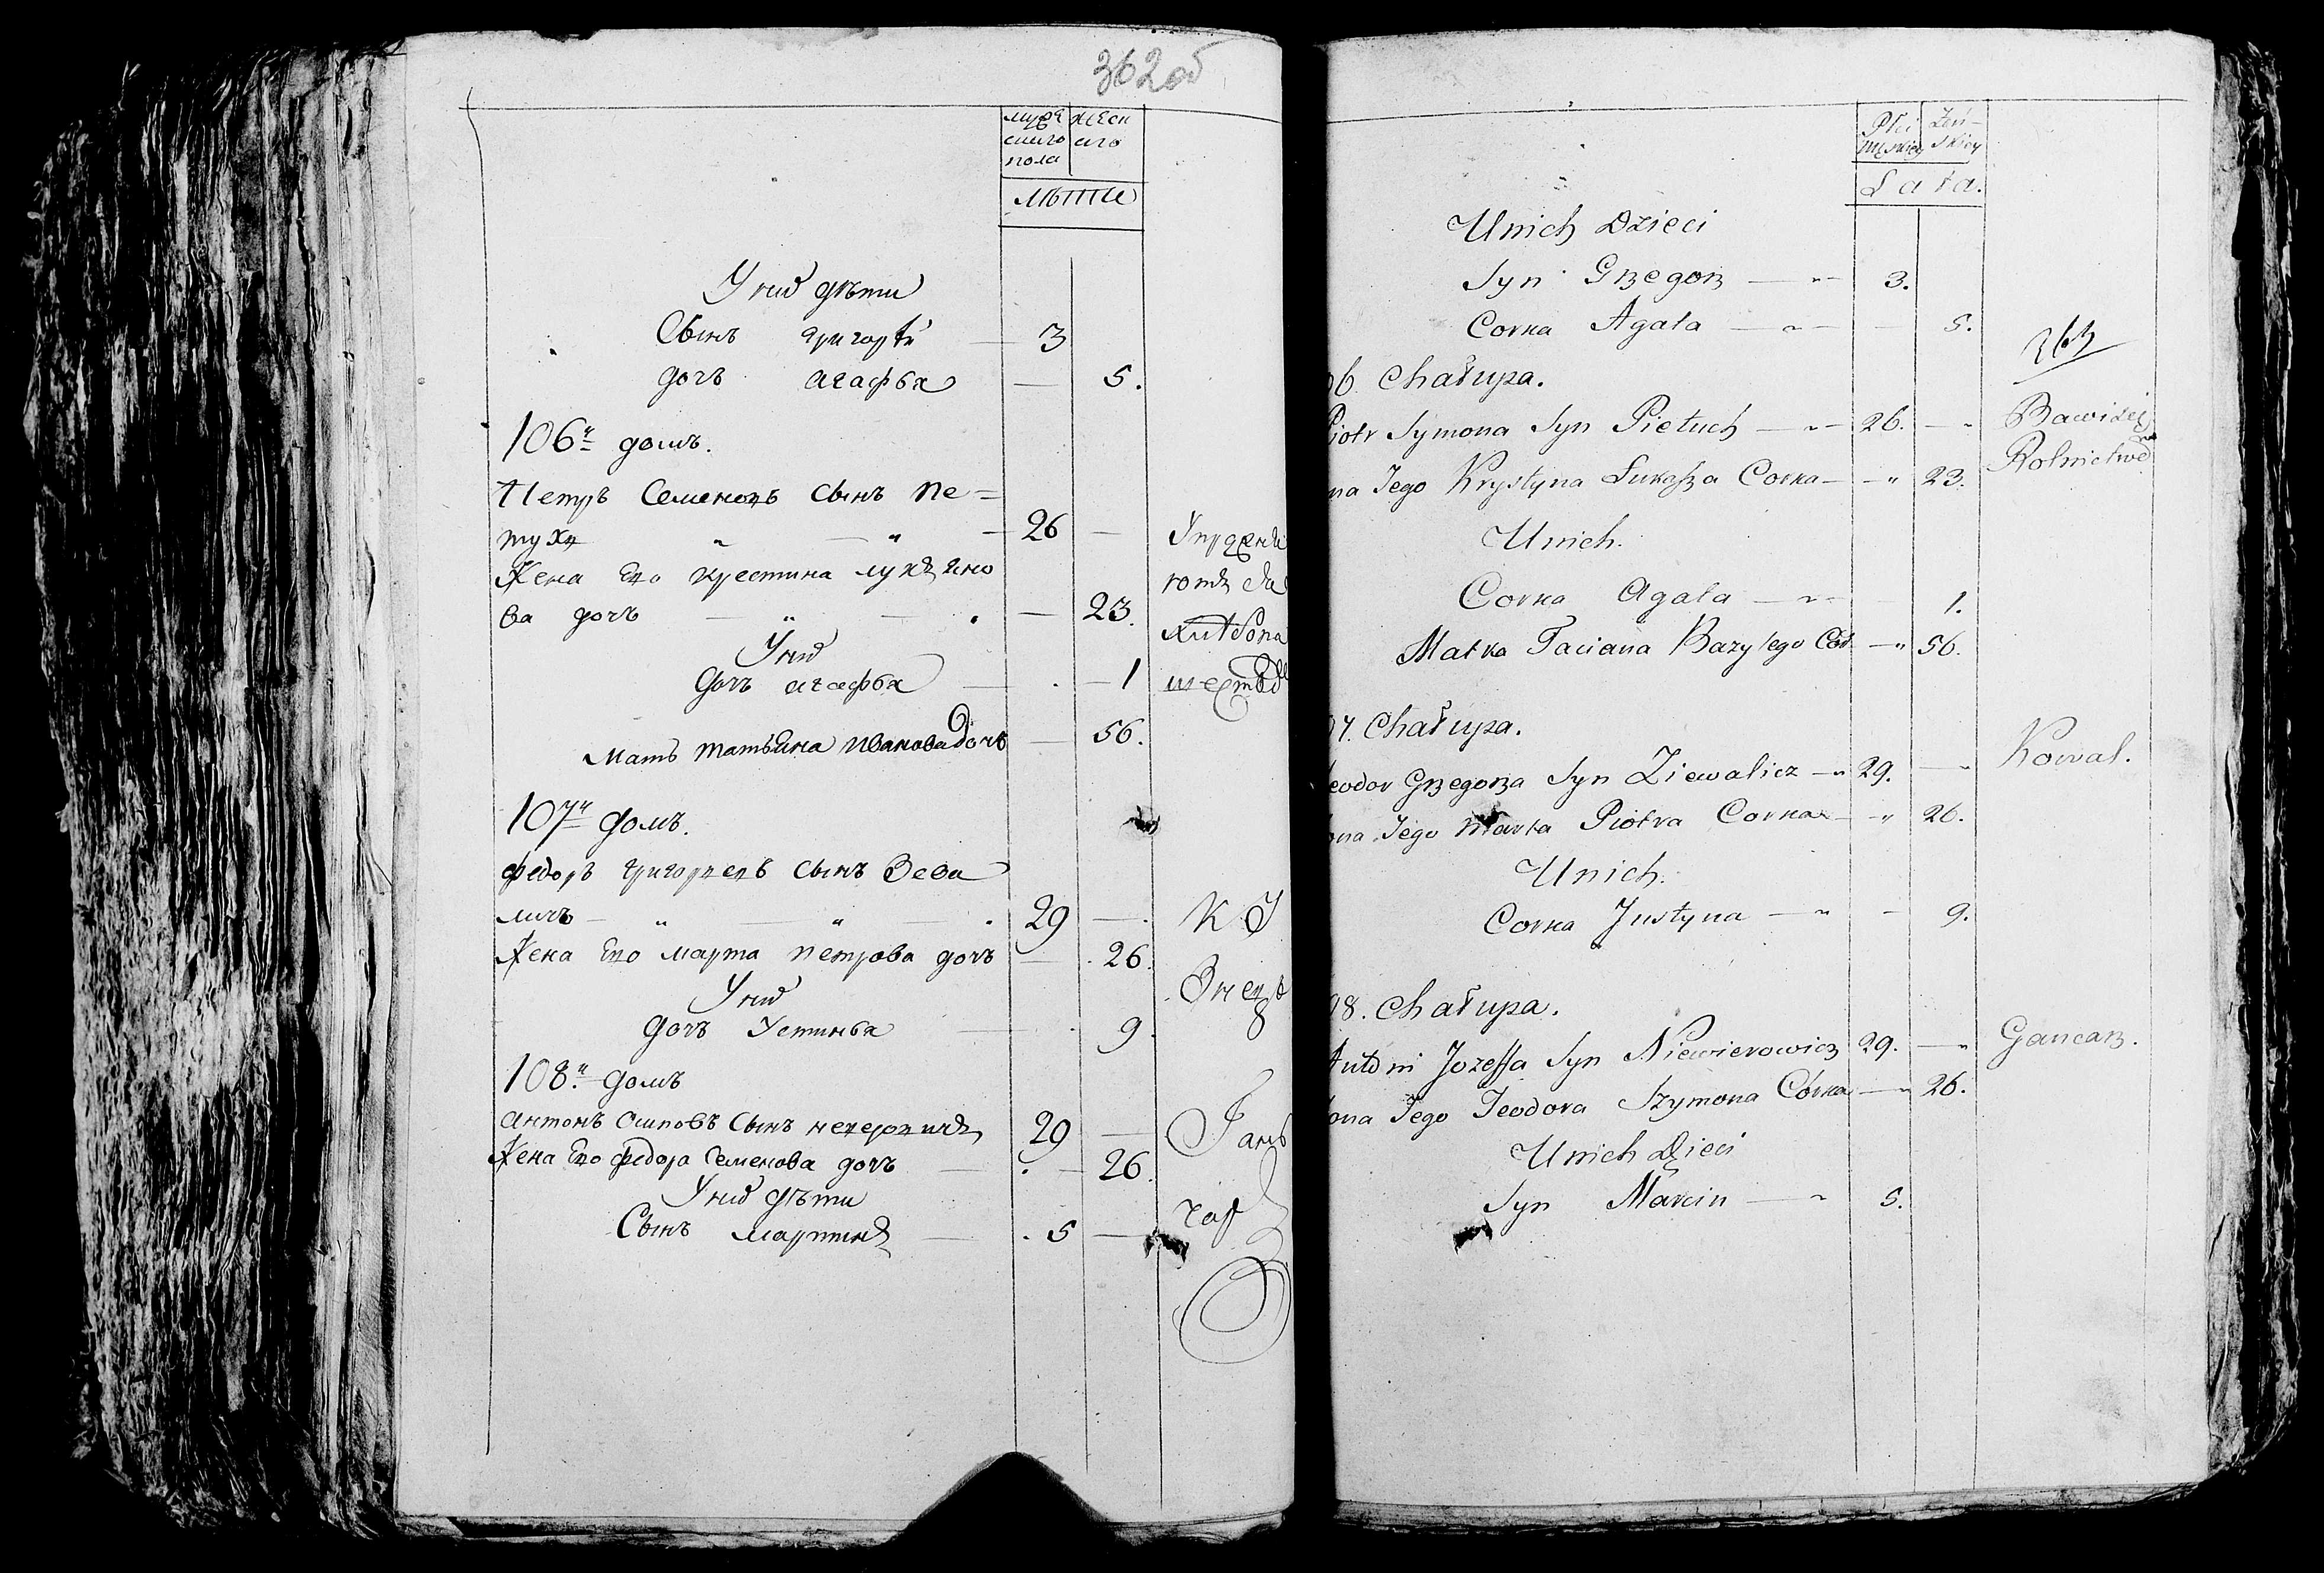 362об
мужескаго пола
женскаго
лѣта
У них дѣти
Сынъ григорей 3
дочь агафья 5.
106й домъ.
Петръ Семеновъ сынъ Пе=
тухъ 26
Жена его крестина лукъяно
ва дочь 23.
У них
дочь агафья 1
Мать татьяна иванова дочь 56.
107й домъ.
федоръ григорьевъ сынъ Зева
личь 29
Жена его марта петрова дочь 26.
У них
дочь Устинья 9.
Кузнецъ
108й домъ
антонъ осиповъ сынъ
29
Жена его федора Семенова дочь 26.
У них дѣти
Сынъ мартинъ 5
Ганчар
Płci Męskiey
Żeńskiey
Lata.
U nich Dzieci
Syn Grzegorz 3.
Corka Agata 5.
363
06. Chałupa.
Piotr Symona Syn Pietuch 26.
Bawi się
Rolnictwe
na Jego Krystyna Łukasza Corka 23.
U nich.
Corka Agata 1.
Matka Taciana Bazylego Cór 56.
07. Chałupa.
eodor Grzegorza Syn Ziewalicz 29. Kowal.
ona Jego Marta Piotra Corka 26.
U nich.
Corka Justyna 9.
08. Chałupa.
Antoni Jozeffa Syn Niewierowicz 29. Gancarz.
ona Jego Teodora Szymona Córka 26.
U nich Dzieci
Syn Marcin 5.